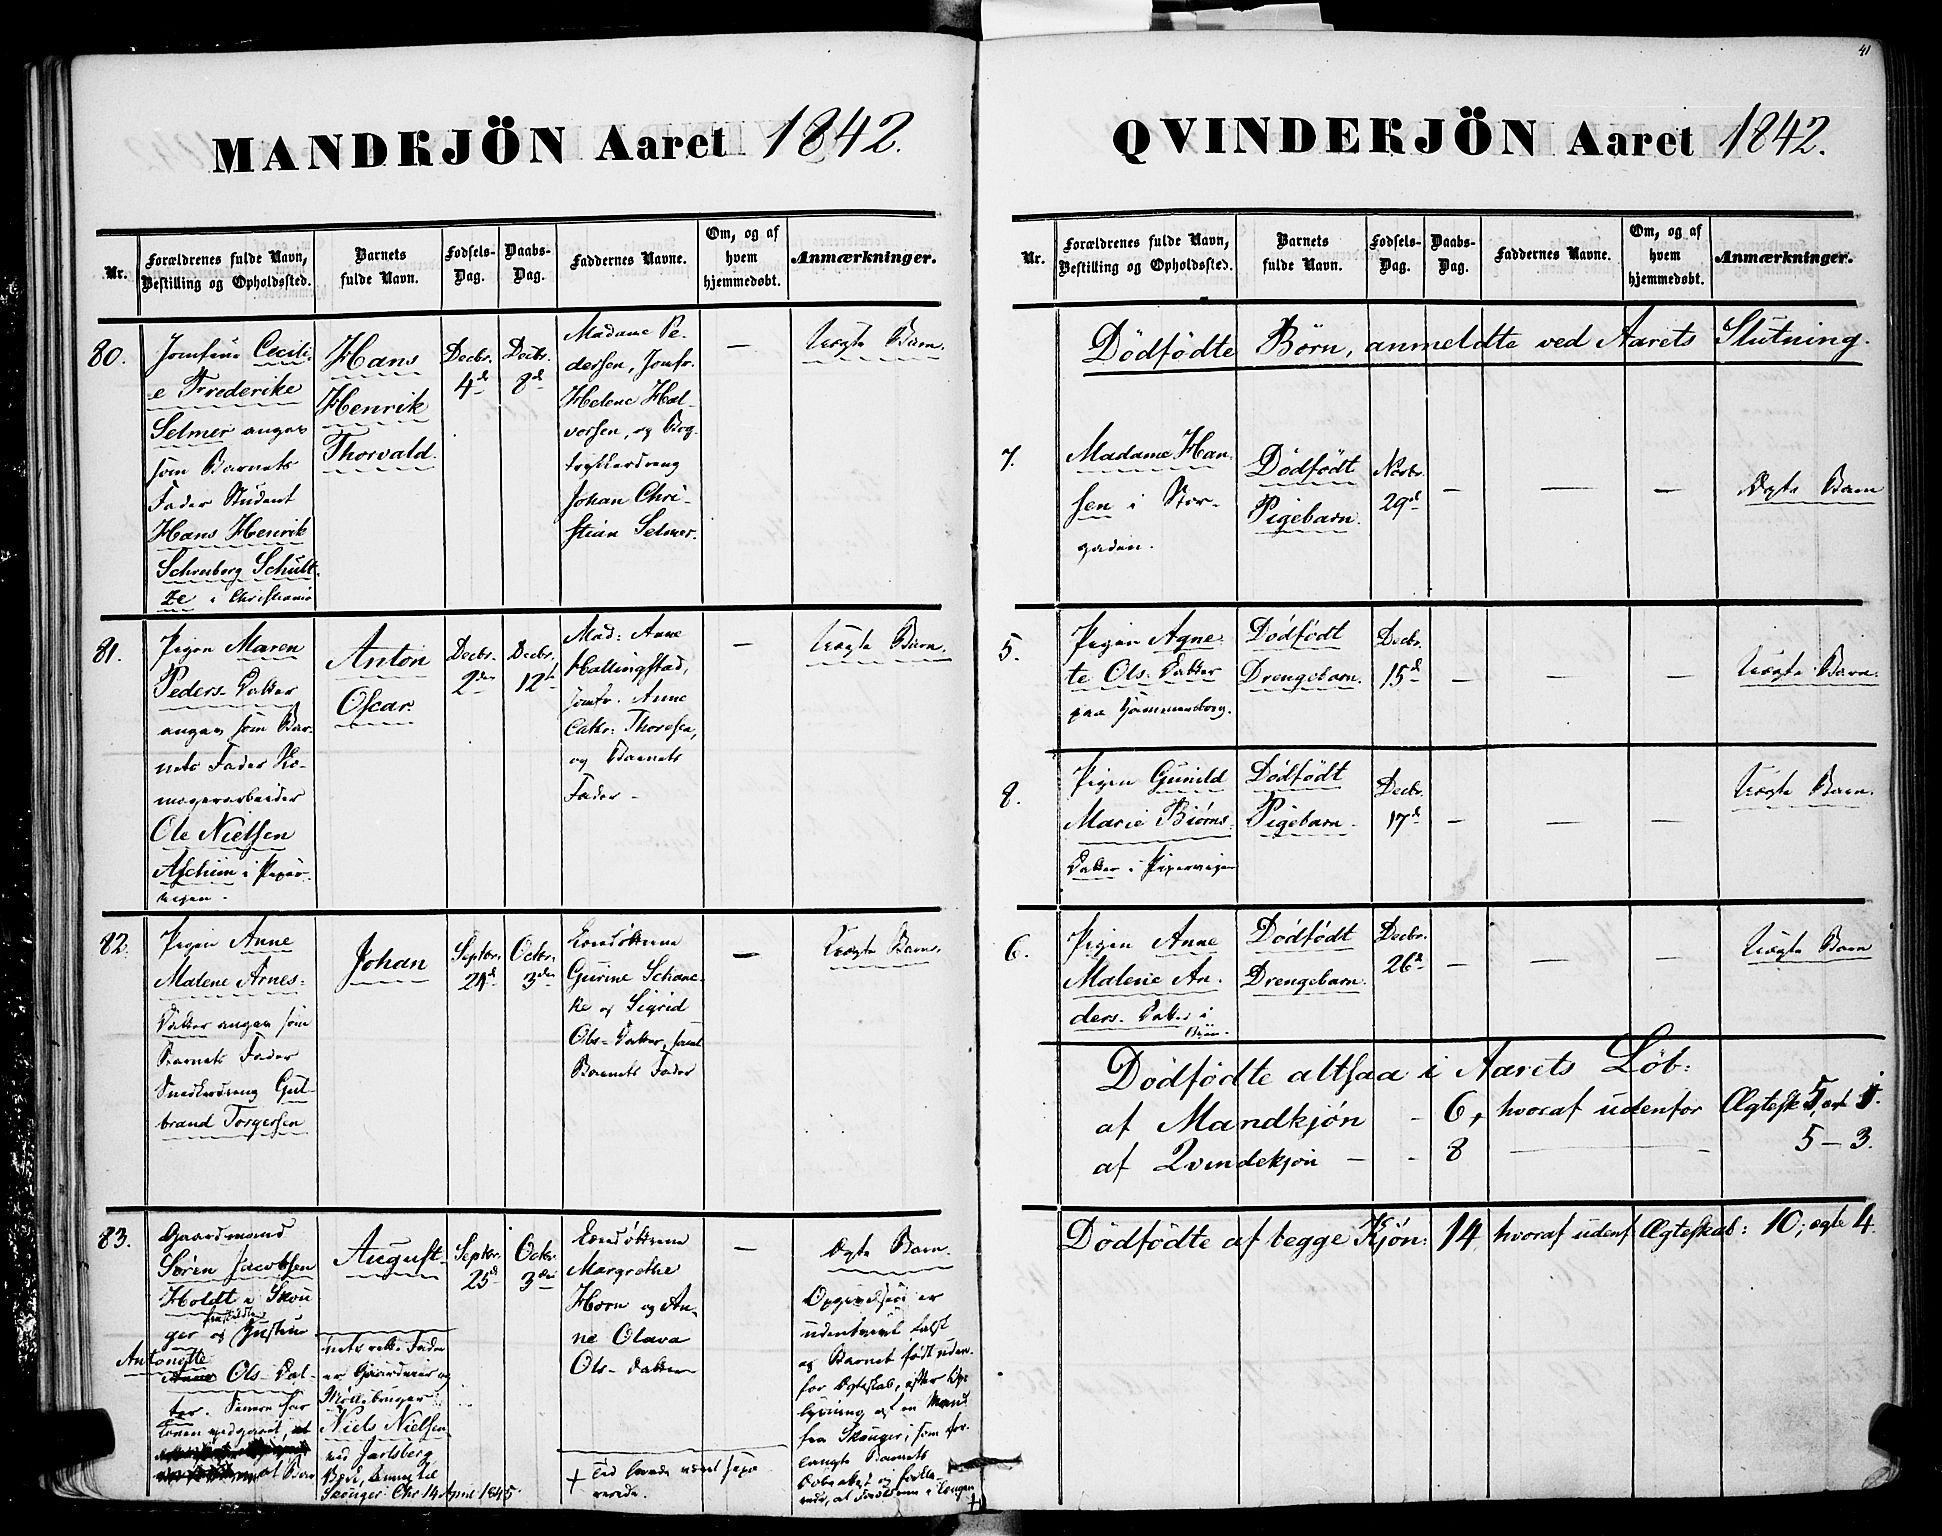 41
MANDKJÖN Aaret 1842.
Nr.
Forældrenes fulde Navn,
Bestilling og Opholdssted.
Barnets
fulde Navn.
Fødsels-
Dag.
Daabs-
Dag.
Faddernes Navne.
Om, og af
hvem
hjemmedøbt.
Anmærkninger.
80.
Jomfrue Cecili-
e Frederike
Selmer angav
som Barnets
Fader Student
Hans Henrik
Schult-
ze i Christiania
Hans
Henrik
Thorvald.
Decbr.
4de
Decbr.
8de
Madame Pe-
dersen, Jomfr.
Helene Hal-
vorsen, og Bog-
trykkerdreng
Johan Chri-
stian Selmer.
—
Uægte Barn.
81.
Pigen Maren
Peders-Datter
angav som Bar-
nets Fader
Ole Nielsen
Aschim i Piper-
vigen.
Anton
Oscar.
Decbr.
2den
Decbr.
12te
Mad: Anne
Hallingstad,
Jomfr. Anne
Cathr: Thoresen,
og Barnets
Fader.
—
Uægte Barn.
82.
Pigen Anne
Malene Arnes-
Datter angav som
Barnets Fader
Snedkerdreng Gul-
brand Torgersen
Johan
Septbr.
24de
Octbr.
3den
Gurine Schanc-
ke og Sigrid
Ols-Datter, samt
Barnets Fader
—
Uægte Barn.
83.
Gaardmand
Søren Jacobsen
Holdt i Skou
ger og Hustru
Antonette
Anne Ols-Dat-
ter.
at Bar
August
nets rette Fader
er Gaardeier og
Møllebruger
Niels Nielsen
ved Jarlsberg
Skouger. Chr 14 April 1845
Septbr.
25de
Octbr.
3die
Margrethe
Horn og An-
ne Olava
Ols-Datter
—
Ægte Barn.
Opgivelsen er
falsk
og Barnet født uden-
for Ægteskab, efter Op-
lysning af en Mand
fra Skouger, som for-
langte Barnets
Daabsattest og forkla-
rede, at
QVINDEKJÖN Aaret 1842.
Nr.
Forældrenes fulde Navn,
Bestilling og Opholdssted.
Barnets
fulde Navn.
Fødsels-
Dag.
Daabs-
Dag.
Faddernes Navne.
Om, og af
hvem
hjemmedøbt.
Anmærkninger.
Dödfödte Börn, anmeldte ved Aarets Slutning.
7.
Madame Han-
sen i Stor-
gaden.
Dödfödt
Pigebarn.
Novbr.
29de
— — —
Ægte Barn
5.
Pigen Agne-
te Ols-Datter
paa Hammersborg.
Dödfödt
Drengebarn.
Decbr.
15de
— — —
Uægte Barn.
8.
Pigen Gunild
Marie Biørns-
Datter i Pipervigen
Dödfödt
Pigebarn.
Decbr.
17de
— — —
Uægte Barn.
6.
Pigen Anne
Malene An-
ders-Datter i
Dödfödt
Drengebarn.
Decbr.
26de
— — —
Uægte Barn
Dödfödte altsaa i Aarets Löb:
af Mandkjön - 6, hvoraf udenfor Ægtesk 5, ægte 1.
af Qvindekjön - - 8 — - 5 — 3.
Dödfödte af begge Kjön: 14, hvoraf udenf Ægteskab: 10; ægte 4.